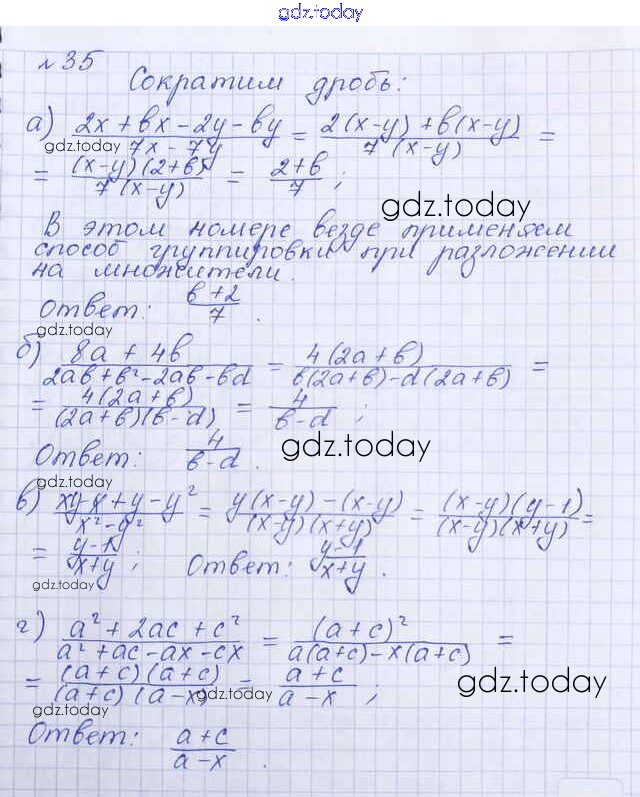 gdz.today
№35
Сократим дробь:
а) (2x + bx - 2y - by)/(7x - 7y) = (2(x-y) + b(x-y))/(7(x-y)) =
gdz.today
= ((x-y)(2+b))/(7(x-y)) = (2+b)/7;
gdz.today
В этом номере везде применяем
способ группировки при разложении
на множители.
Ответ: (b+2)/7.
gdz.today
б) (8a + 4b)/(2ab + b² - 2ad - bd) = (4(2a+b))/(b(2a+b) - d(2a+b)) =
= (4(2a+b))/((2a+b)(b-d)) = 4/(b-d);
gdz.today
Ответ: 4/(b-d).
gdz.today
в) (xy - x + y - y²)/(x² - y²) = (y(x-y) - (x-y))/((x-y)(x+y)) = ((x-y)(y-1))/((x-y)(x+y)) =
= (y-1)/(x+y); Ответ: (y-1)/(x+y).
gdz.today
г) (a² + 2ac + c²)/(a² + ac - ax - cx) = (a+c)²/(a(a+c) - x(a+c)) =
= ((a+c)(a+c))/((a+c)(a-x)) = (a+c)/(a-x);
gdz.today
gdz.today
gdz.today
Ответ: (a+c)/(a-x).